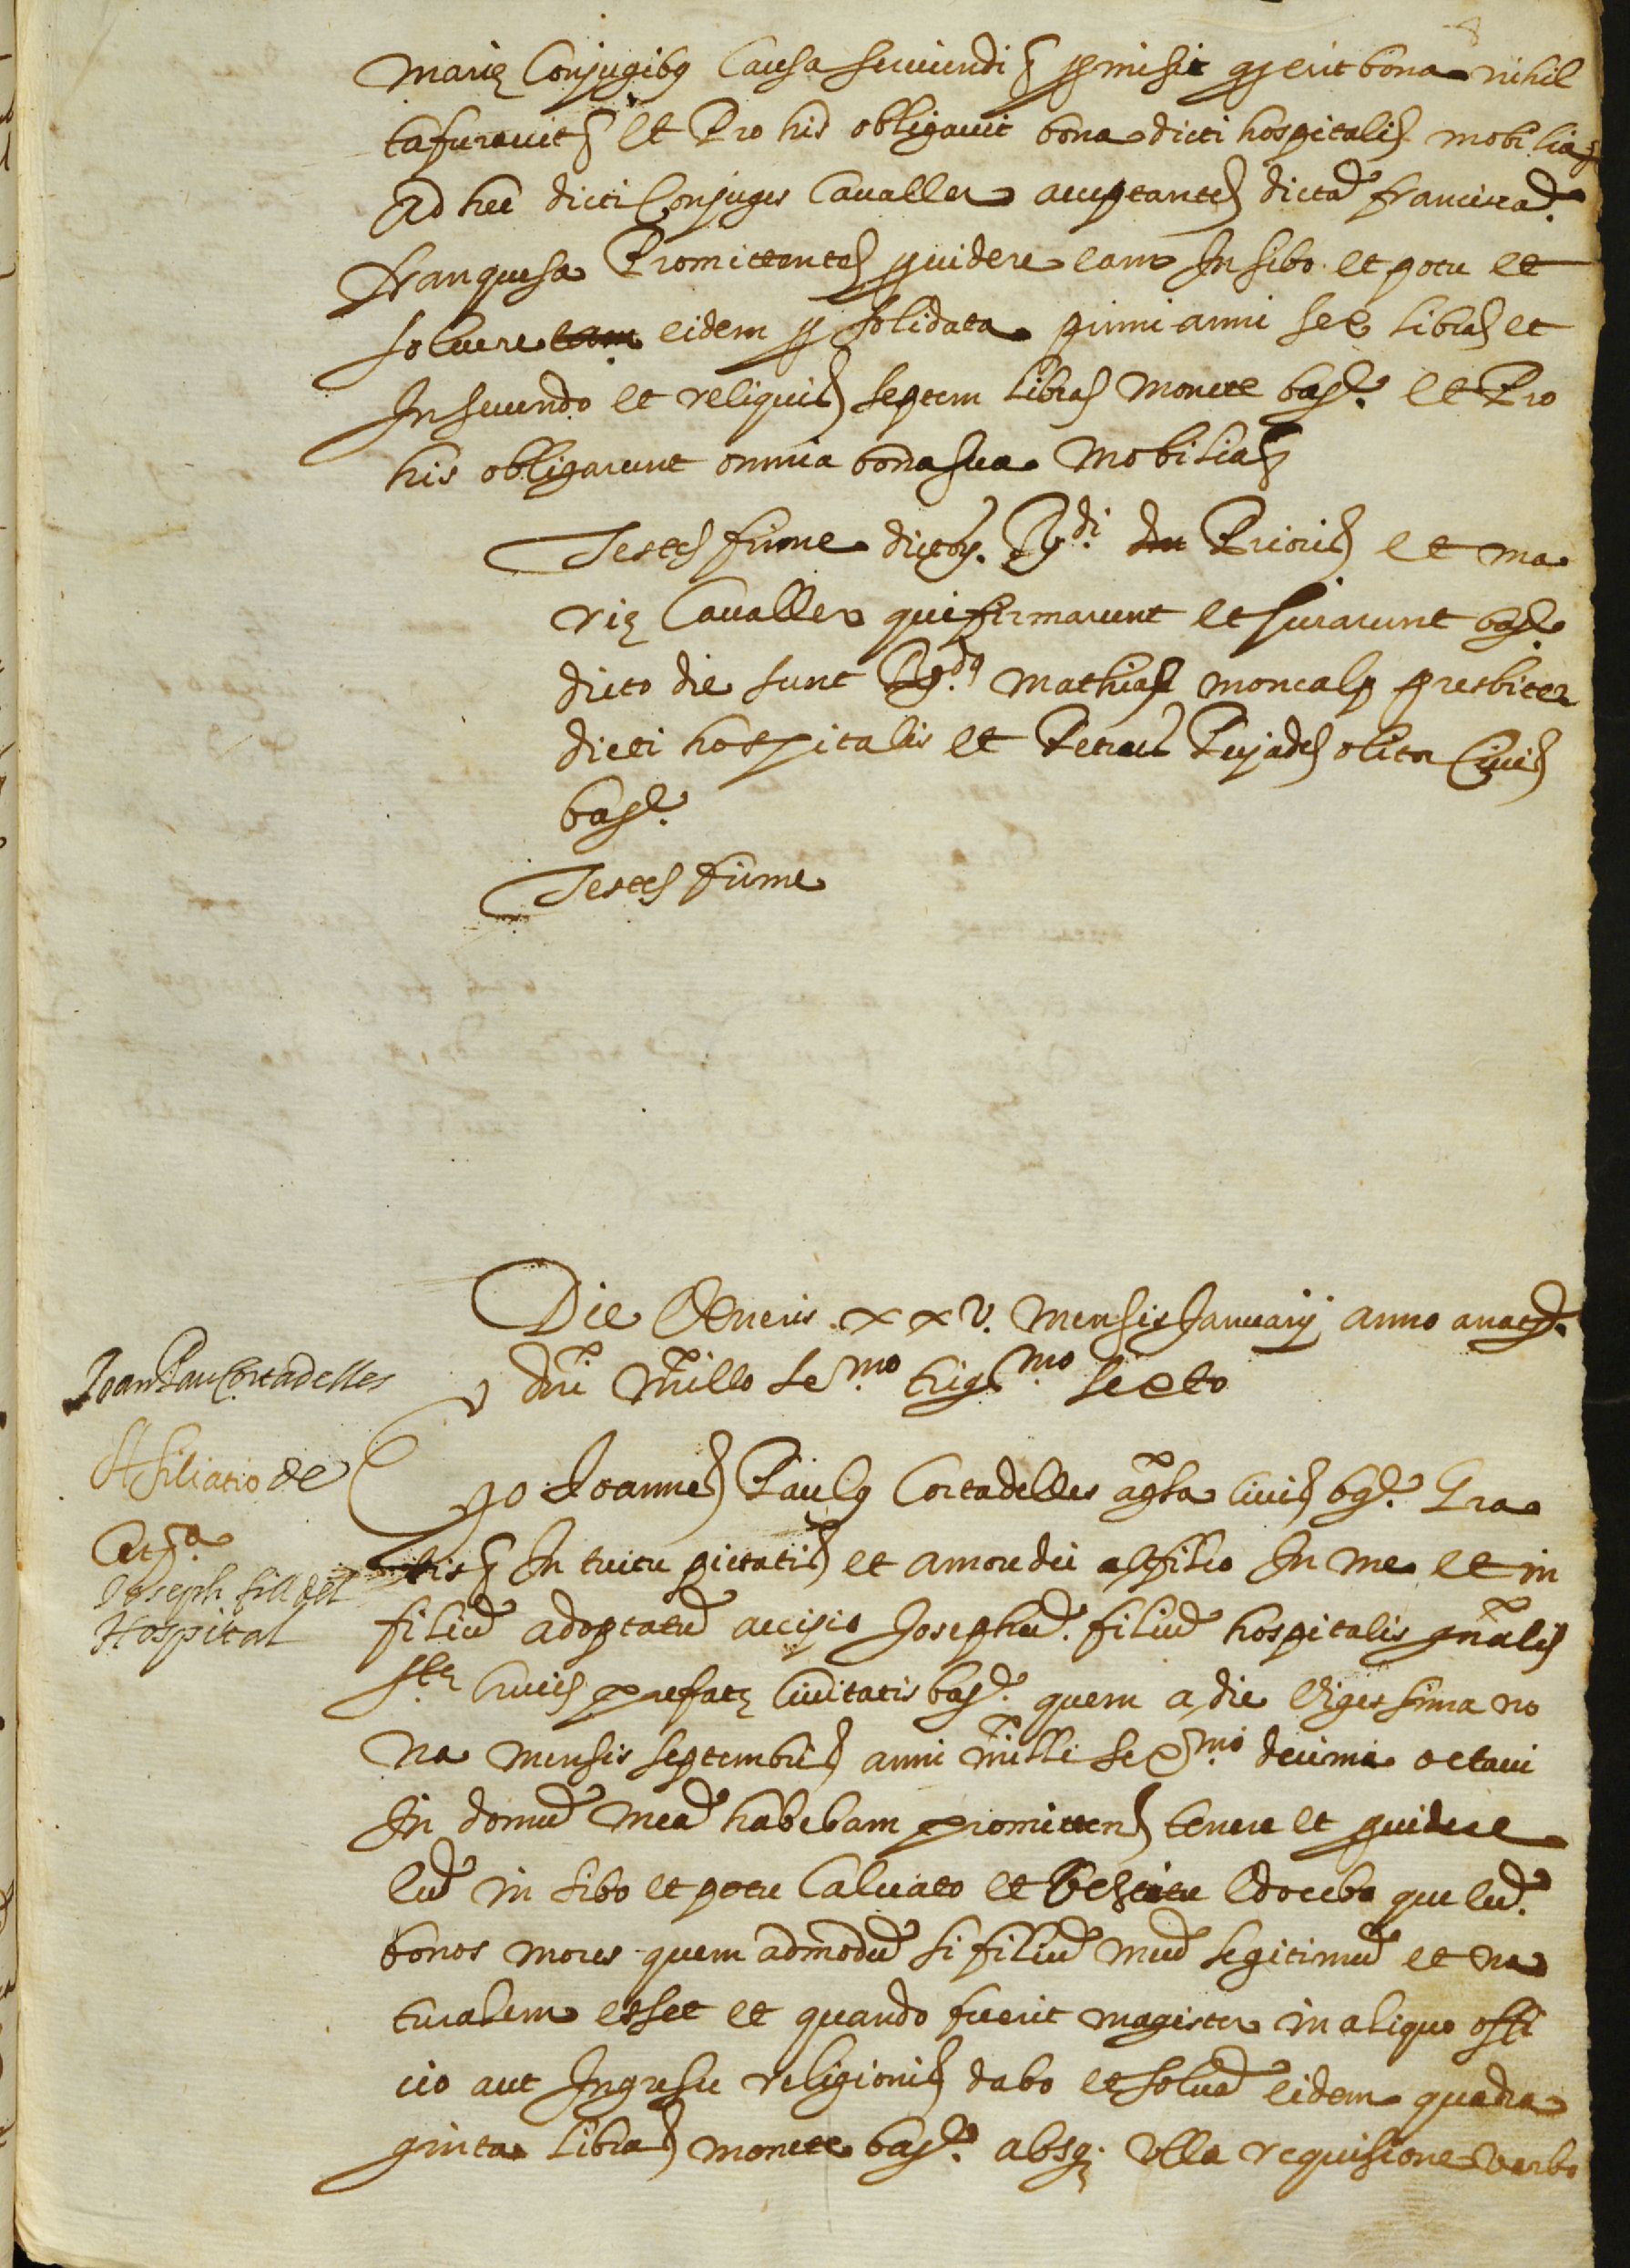 Marie Conjugibus Causa serviendi & promisit quod erit bona nihil
tafuravit & Et Pro his obligavit bona dicti hospitalis mobilia &
Ad hec dicti Conjuges Cavaller acceptantes dictã franciscã.
franquesa Promittentes providere eam In sibo et potu et
solvere eam eidem pro solidata primi anni sex libras et
In secundo et reliquis septem libras Monete barᵉ. et Pro
his obligarunt omnia bona sua Mobilia &
Testes firme dictoꝝ. Rᵈⁱ dñ Prioris et ma
rie Cavaller qui firmarunt et Jurarunt barᵉ
dicto die sunt Rᵈˢ Mathias moncalp presbiter
dicti hospitalis et Petrus Pujades olitor Civis
barᵉ.
Testes firme
Die Veneris .xxv. Mensis Januarij anno a natᵉ.
dñi Millo seᵐᵒ trigᵐᵒ sexto
Joan Pau Cortadelles
Affiliatio de
Joseph fill del
Hospital
Ego Joannes Paulus Cortadelles civis barᵉ. Gra
tis & In tuitu pietatis et amore dei affilio In me et in
filiũ adoptatũ accipio Josephũ. filiũ hospitalis gñalis
Stᵉ Crucis prefate Civitatis barᵉ. quem a die Vigessima no
na mensis septembris anni milli sexᵐᵒ decimi octavi
In domũ meã habebam promittens tenere et providere
eũ in sibo et potu Calciato et Vestitu Edocebo que eũ.
bonos mores quem admodũ si filiũ meũ legitimũ et na
turalem esset et quando fuerit magister in aliquo offi
cio aut Ingresu religionis dabo et solvã eidem quadra
ginta libras monete barᵉ. absq. Ulla requisione verbo